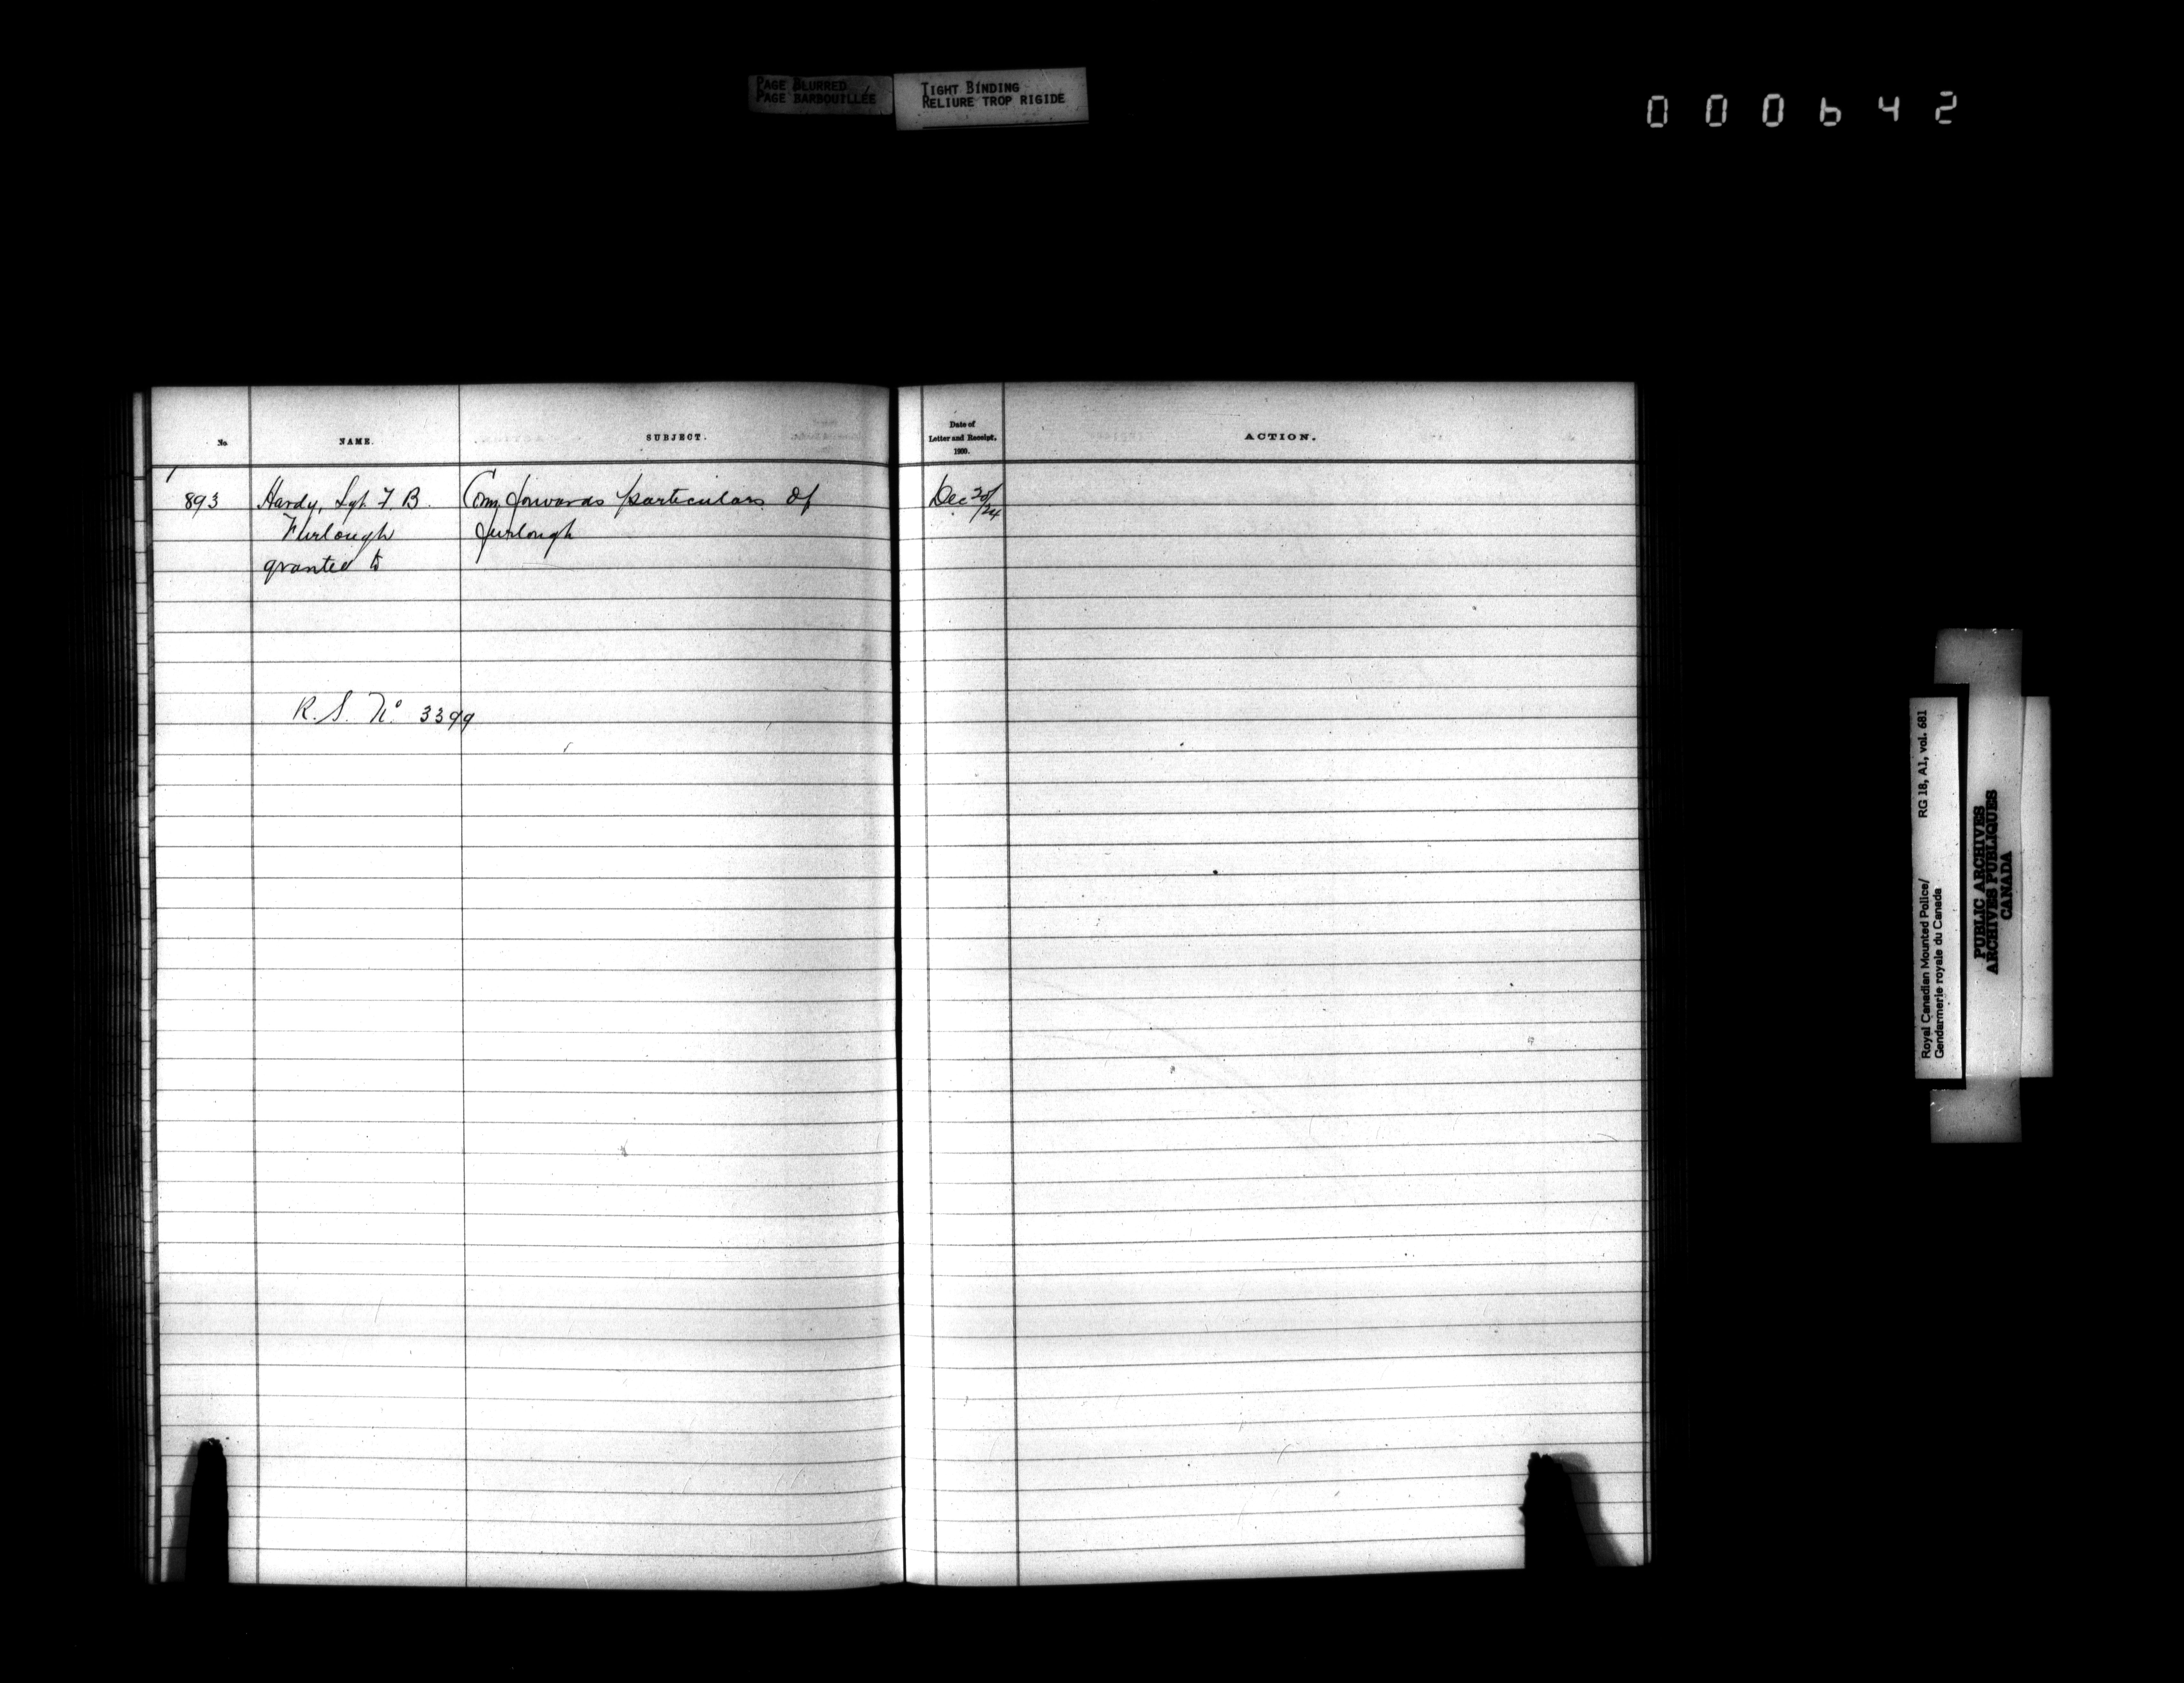 PAGE BLURRED
PAGE BARBOUILLÉE
TIGHT BINDING
RELIURE TROP RIGIDE
000642
No.
NAME.
SUBJECT.
Date of
Letter and Receipt,
1900.
ACTION.
893
Hardy, Sgt F. B.
Furlough
granted to
Com. forwards particulars of
furlough
Dec 20/24
R. S. No 3399
Royal Canadian Mounted Police/
Gendarmerie royale du Canada
RG 18, A1, vol. 681
PUBLIC ARCHIVES
ARCHIVES PUBLIQUES
CANADA